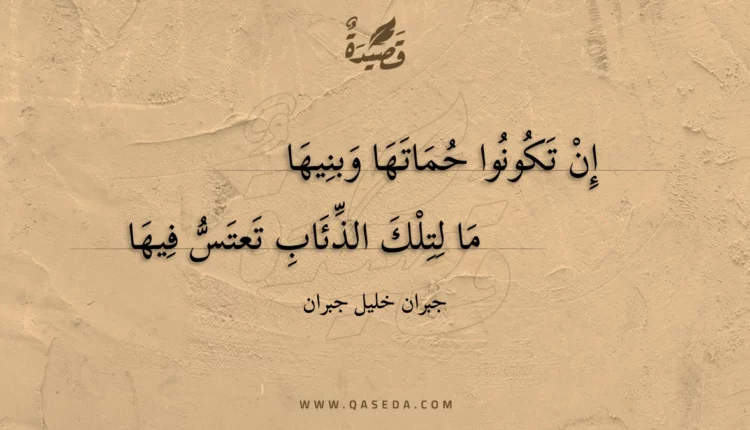 قَصِيدَةٌ
إِنْ تَكُونُوا حُمَاتَهَا وَبنِيهَا
مَا لِتِلْكَ الذِّئَابِ تَعتَسُّ فِيهَا
جبران خليل جبران
WWW.QASEDA.COM